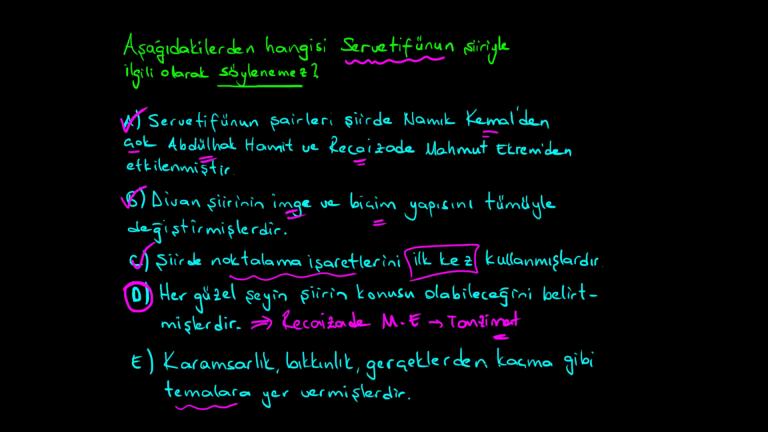 Aşağıdakilerden hangisi Servetifünun şiiriyle
ilgili olarak söylenemez?
A) Servetifünun şairleri şiirde Namık Kemal'den
çok Abdülhak Hamit ve Recaizade Mahmut Ekrem'den
etkilenmiştir.
B) Divan şiirinin imge ve biçim yapısını tümüyle
değiştirmişlerdir.
C) Şiirde noktalama işaretlerini ilk kez kullanmışlardır
D) Her güzel şeyin şiirin konusu olabileceğini belirt-
mişlerdir. ⇒ Recaizade M.E → Tanzimat
E) Karamsarlık, bıkkınlık, gerçeklerden kaçma gibi
temalara yer vermişlerdir.